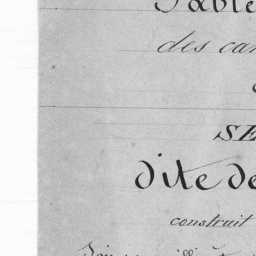 Table
des can
SE
dite de
construit